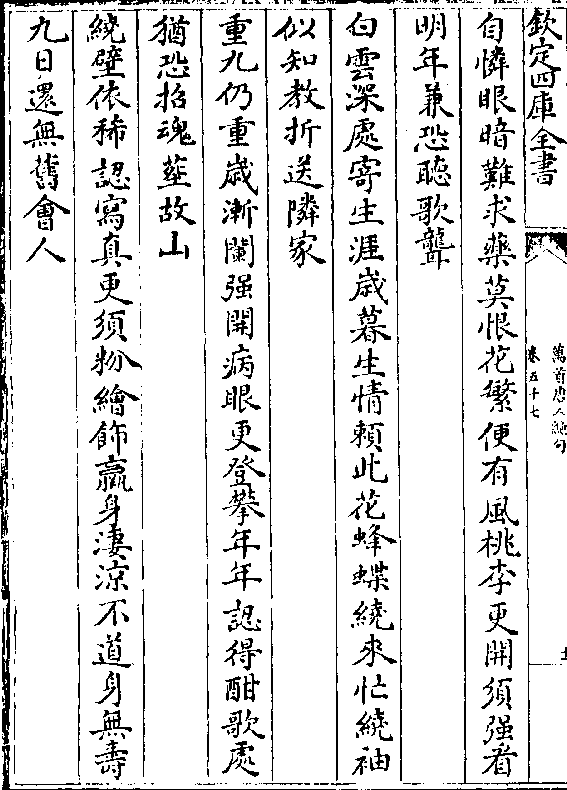 欽定四庫全書
萬首唐人絶句
卷五十七
自憐眼暗難求藥莫恨花繁便有風桃李更開須强看
明年兼恐聽歌聾
白雲深處寄生涯歲暮生情賴此花蜂蝶繞來忙繞袖
似知教折送隣家
重九仍重歲漸闌强開病眼更登攀年年認得酣歌處
猶恐招魂葬故山
繞壁依稀認寫真更須粉繪飾羸身淒涼不道身無壽
九日還無舊會人